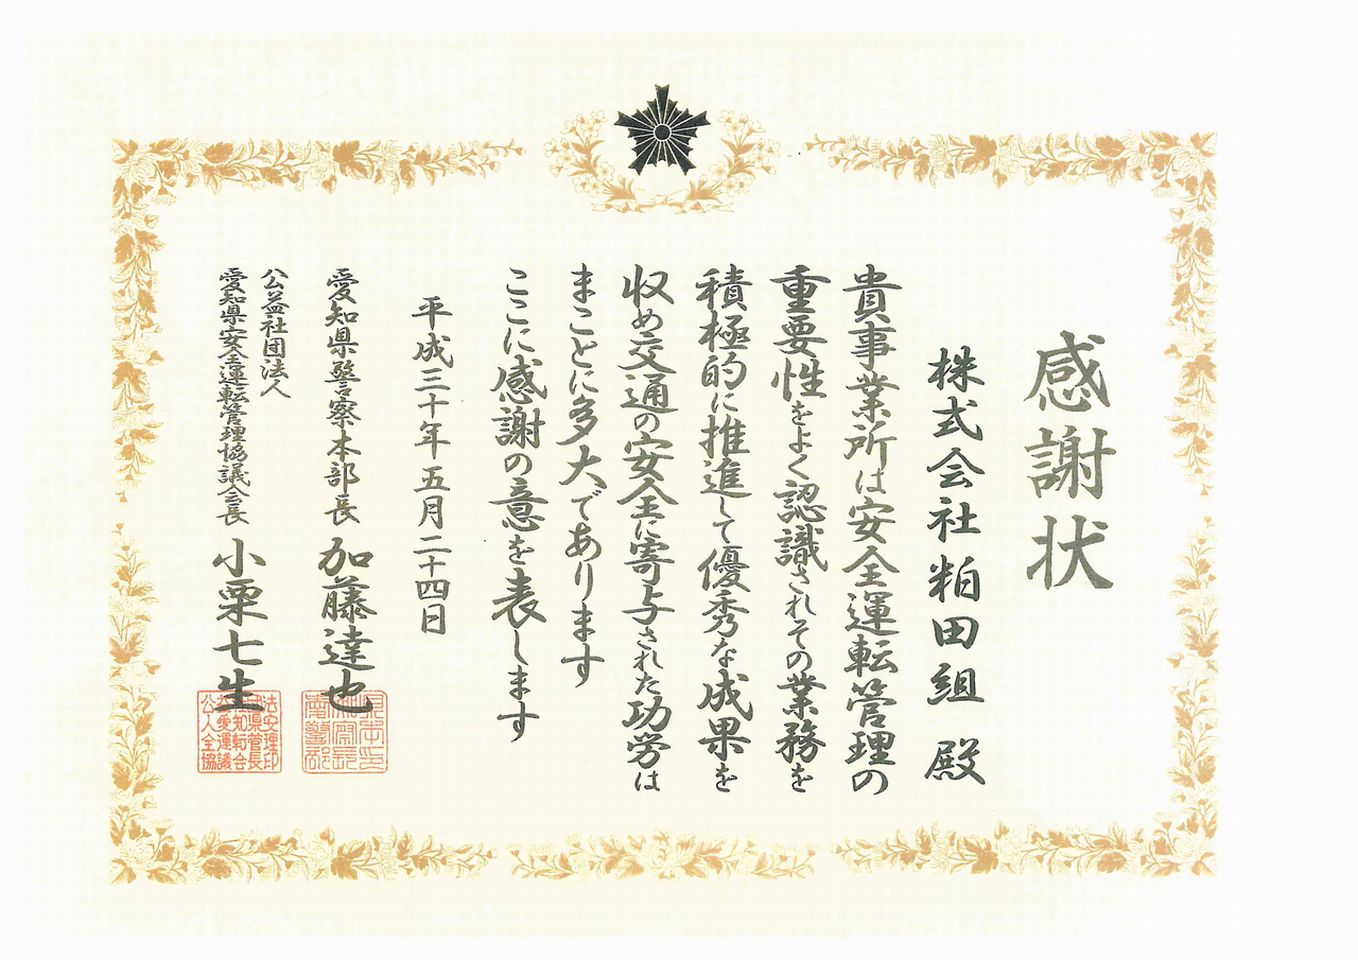 感謝状
株式会社粕田組 殿
貴事業所は安全運転管理の
重要性をよく認識されその業務を
積極的に推進して優秀な成果を
収め交通の安全に寄与された功労は
まことに多大であります
ここに感謝の意を表します
平成三十年五月二十四日
愛知県警察本部長 加藤達也
公益社団法人
愛知県安全運転管理協議会会長 小栗七生